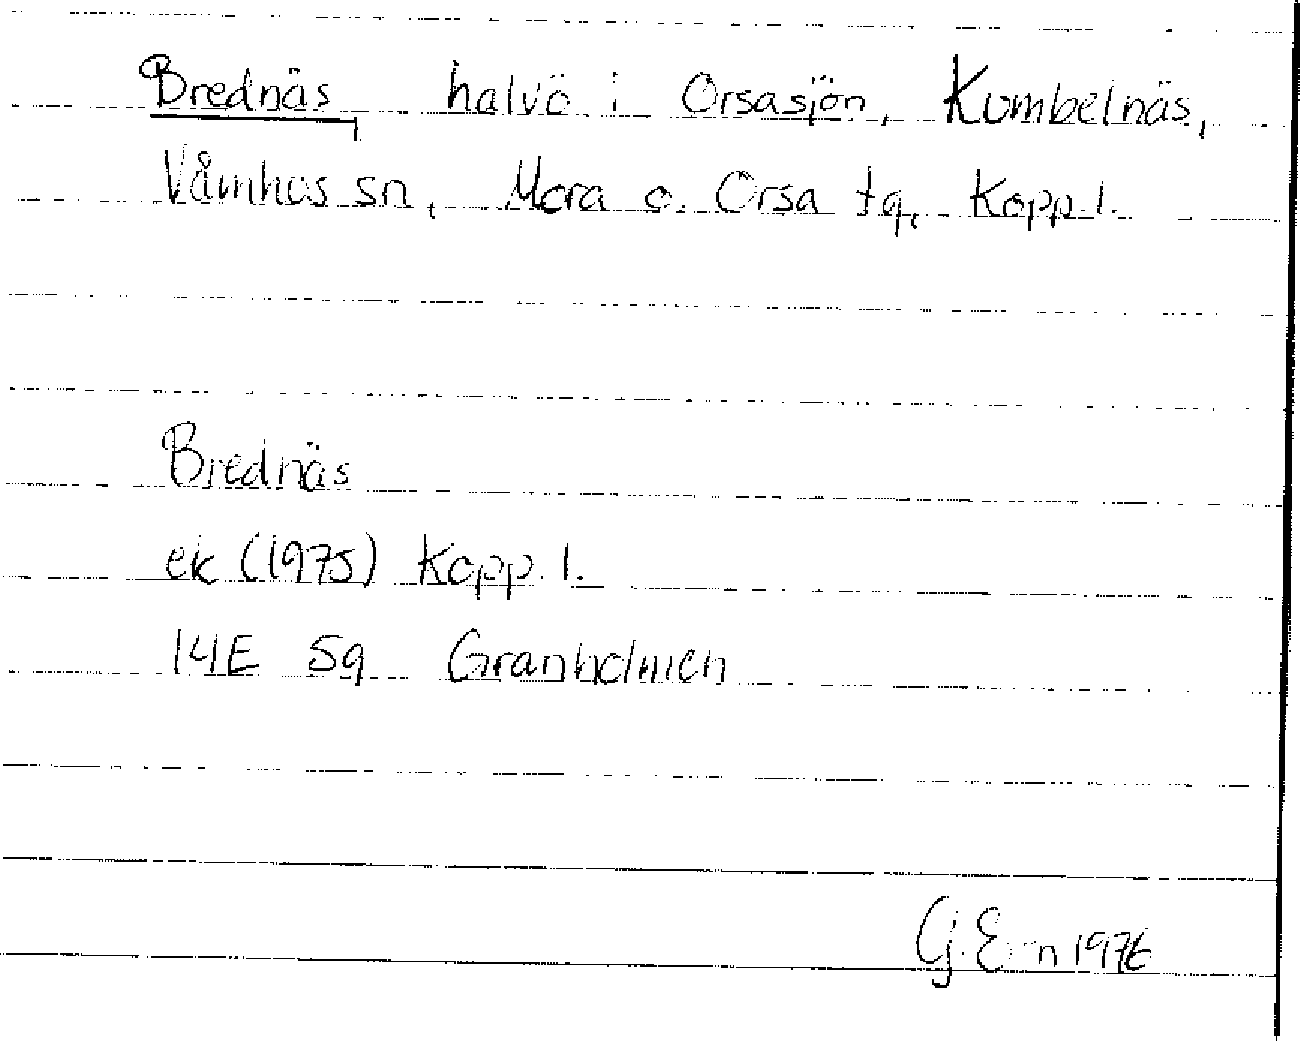 Brednäs, halvö i Orsasjön, Kumbelnäs,
Våmhus sn, Mora o. Orsa tg, Kopp l.
Brednäs
ek (1975) Kopp. l.
14E 5g Granholmen
G. 1976